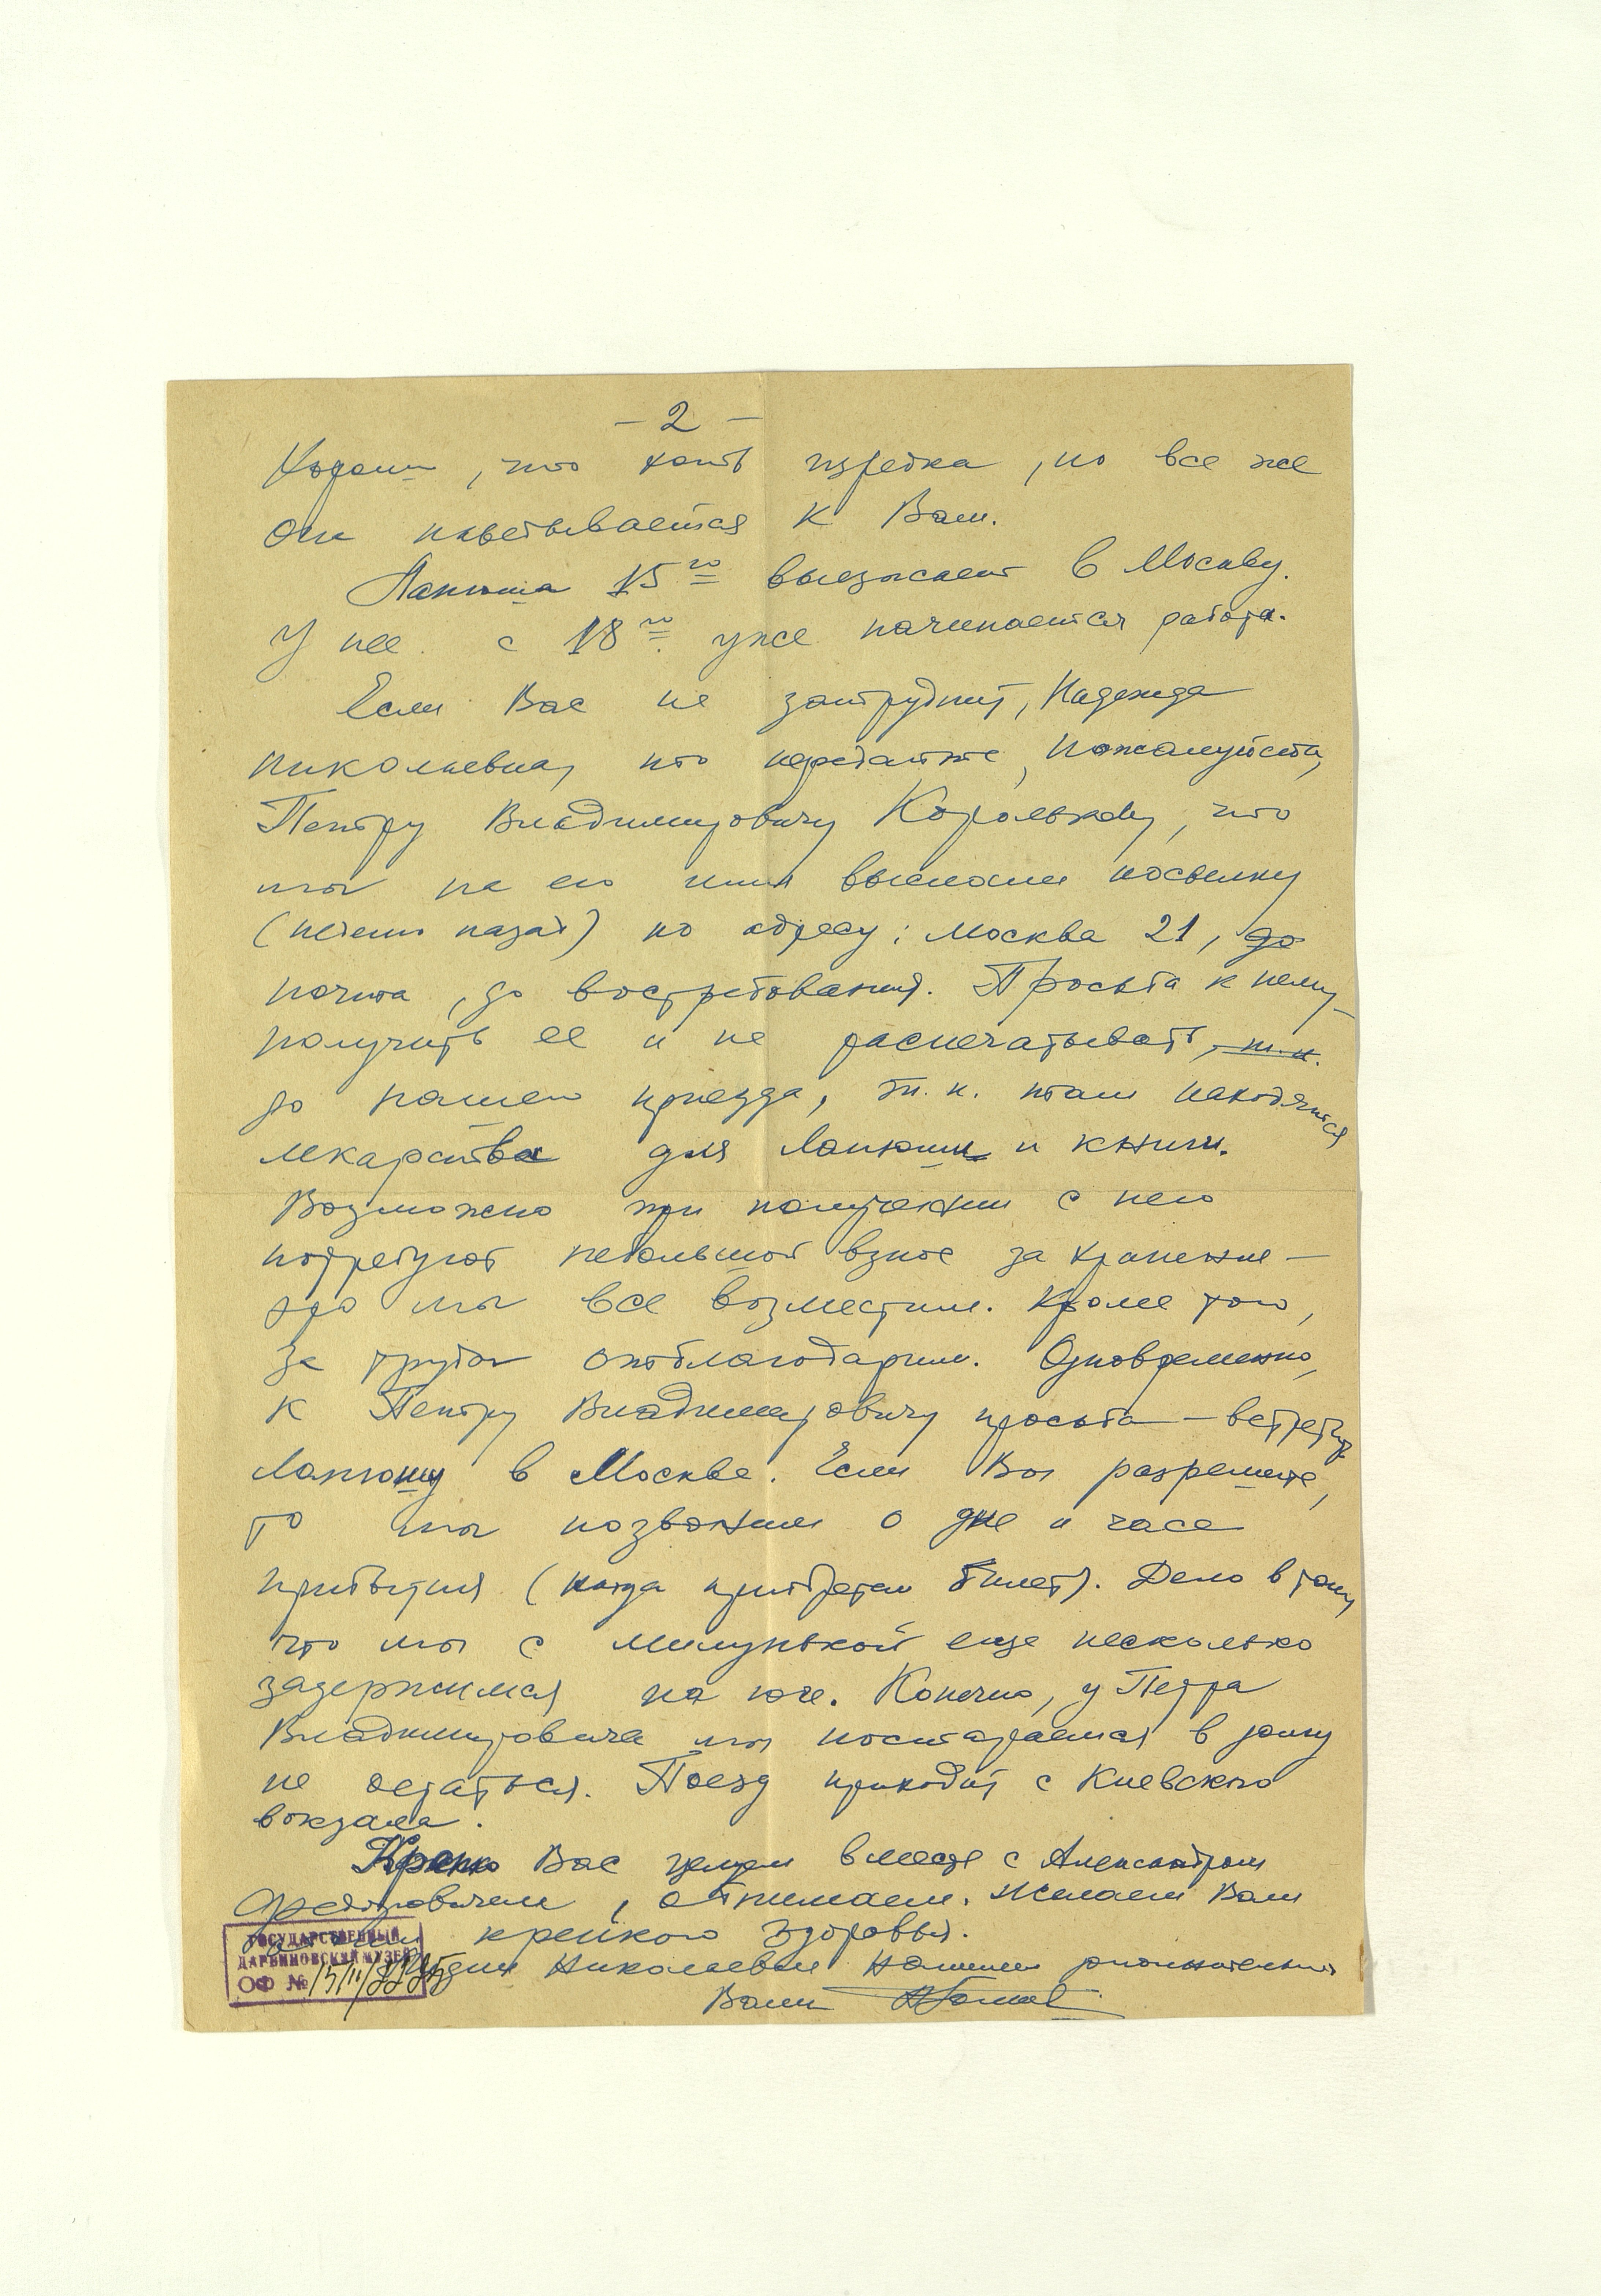 - 2 -
Хорошо, что хоть изредка, но все же
он наведывается к Вам.
Лапюша 15го выезжает в Москву.
У нее с 18го уже начинается работа.
Если Вас не затруднит, Надежда
Николаевна, то передайте, пожалуйста,
Петру Владимировичу Королькову, что
мы на его имя выслали посылку
(недели назад) по адресу: Москва 21, до
почта, до востребования. Просьба к нему
получить ее и не распечатывать, т.к.
до нашего приезда, т.к. там находятся
лекарства для Лапюши и книги.
Возможно при получении с него
потребуют небольшой взнос за хранение –
это мы все возместим. Кроме того,
за труды отблагодарим. Одновременно,
к Петру Владимировичу просьба – встретить
Лапюшу в Москве. Если Вы разрешите,
то мы позвоним о дне и часе
прибытия (когда приобретем билет). Дело в том,
что мы с Милунькой еще несколько
задержимся на юге. Конечно, у Петра
Владимировича мы постараемся в долгу
не остаться. Поезд приходит с Киевского
вокзала.
Крепко Вас целуем вместе с Александром
Федоровичем, обнимаем. Желаем Вам
крепкого здоровья.
Николаевне наши
Ваш
ГОСУДАРСТВЕННЫЙ
ДАРВИНОВСКИЙ МУЗЕЙ
ОФ №